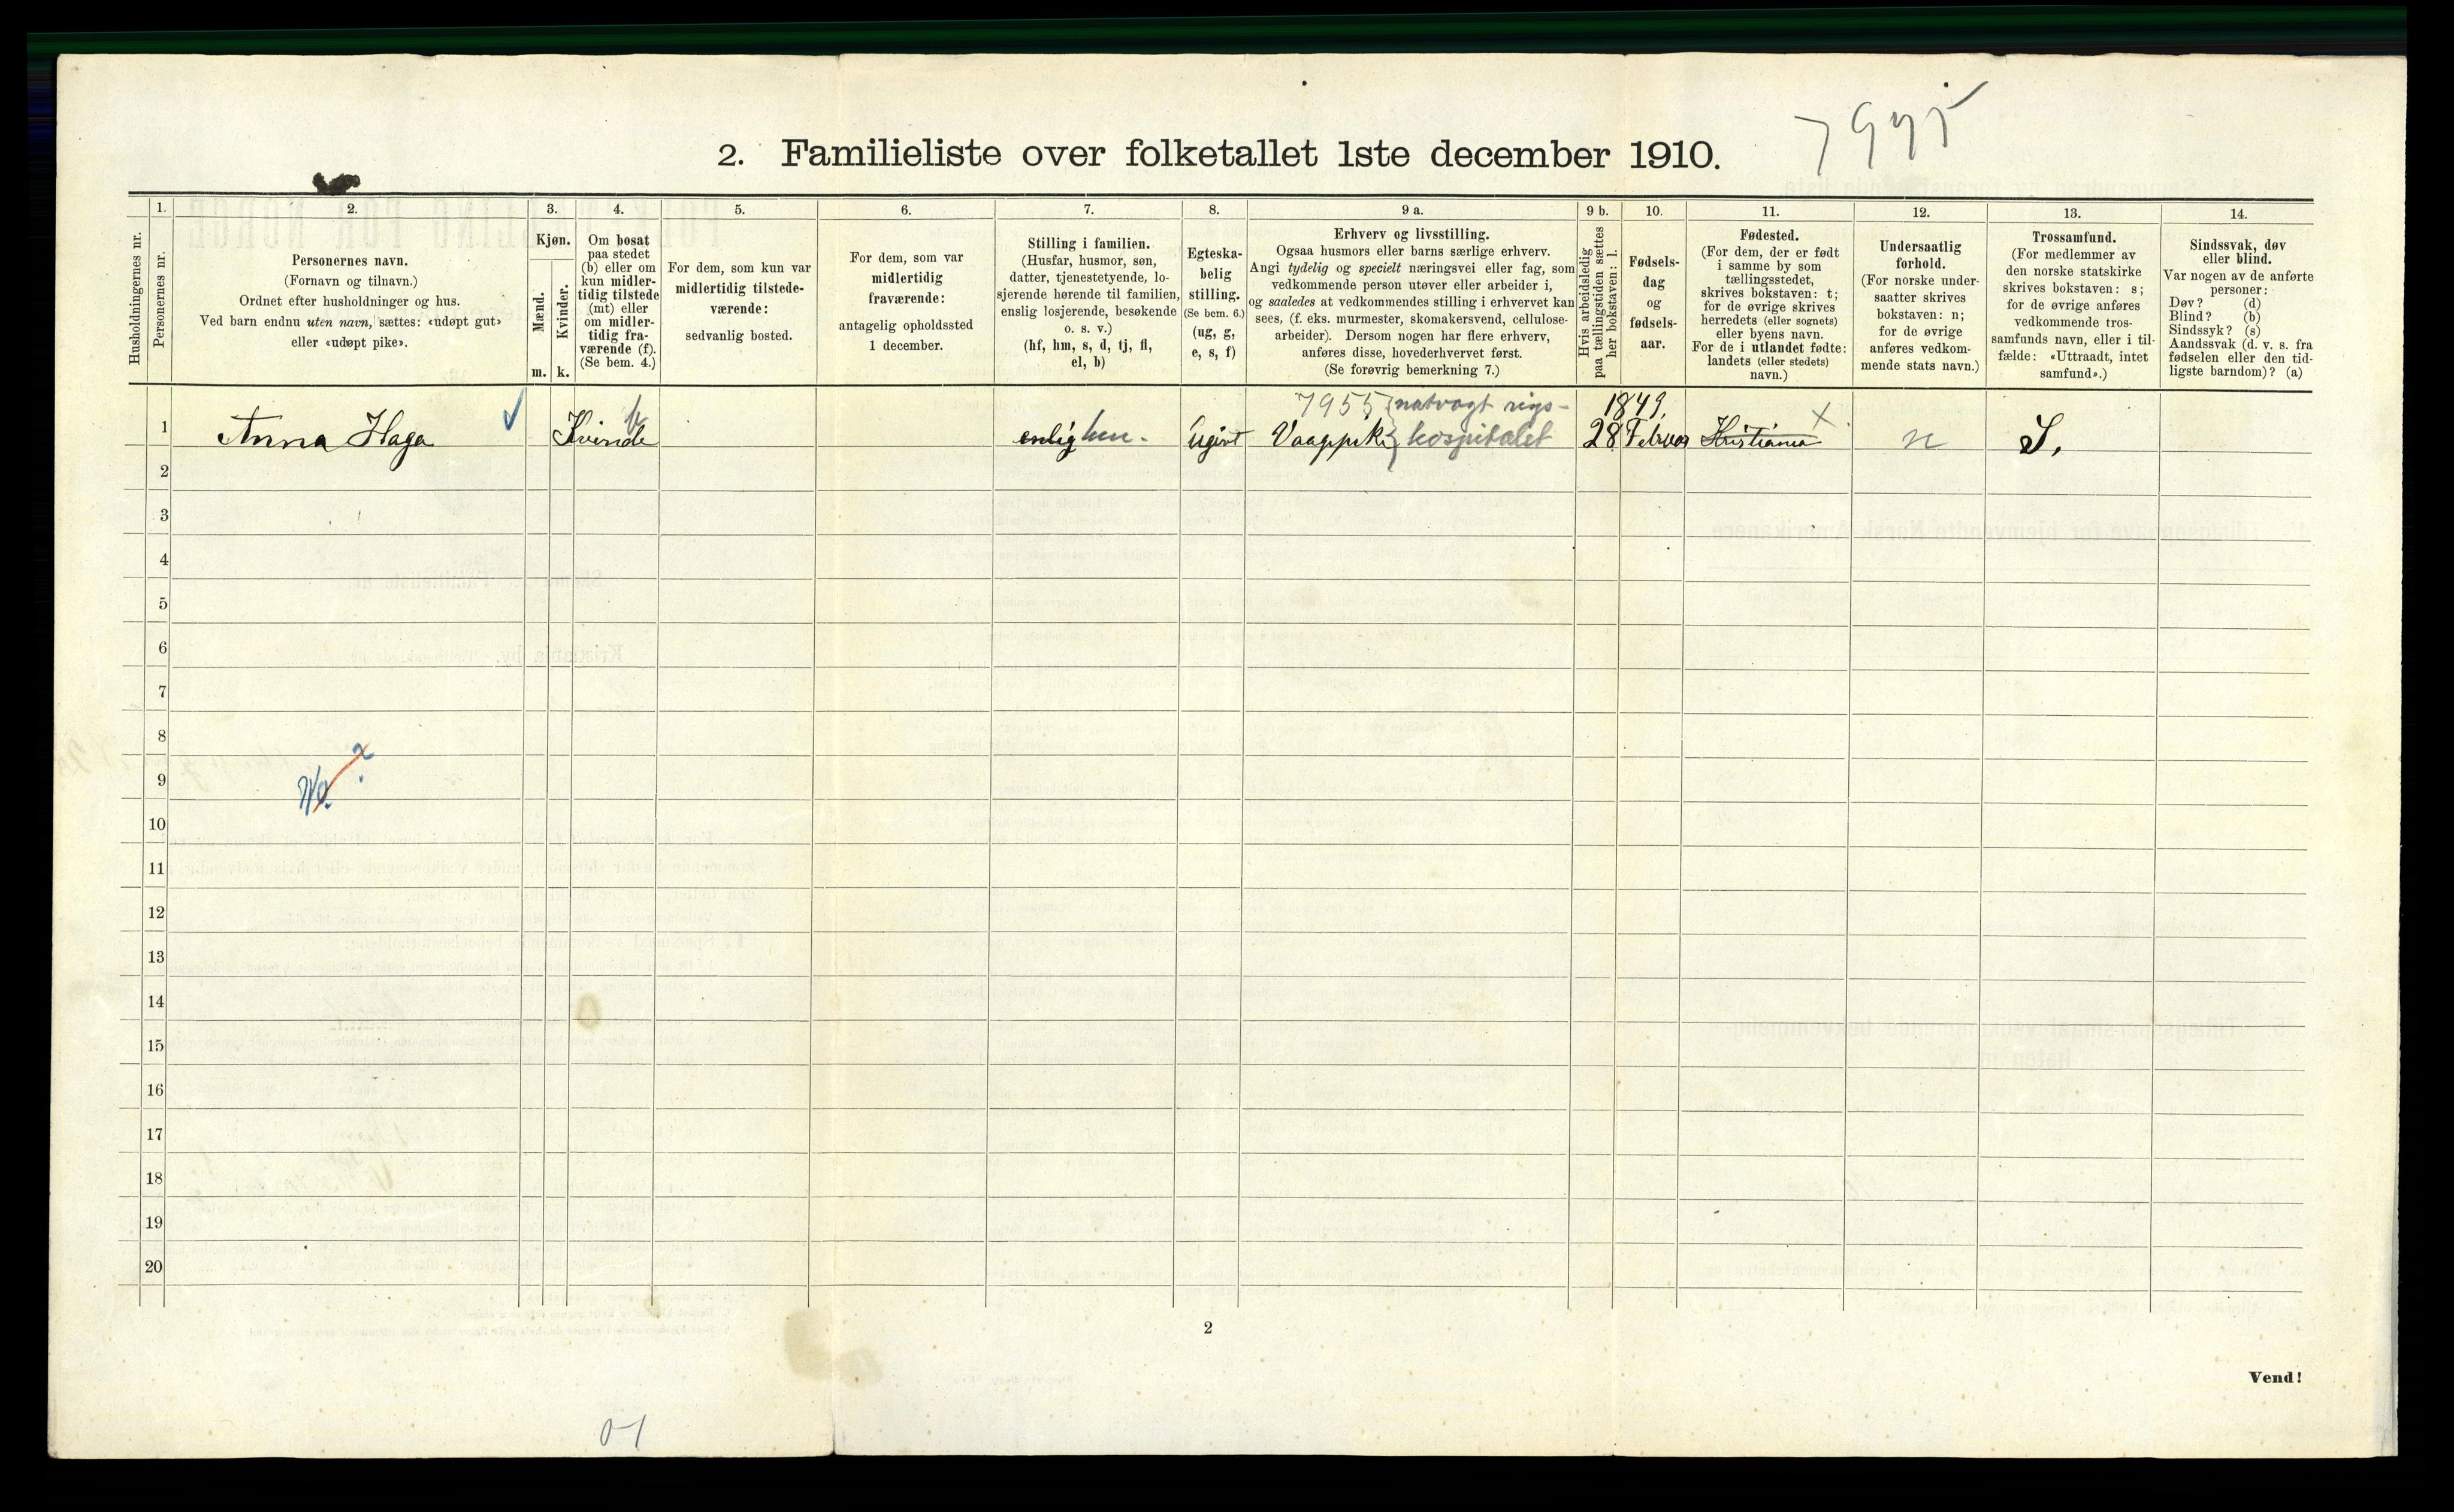 2. Familieliste over folketallet 1ste december 1910.
1. 2. 3. 4. 5. 6. 7. 8. 9 a. 9 b. 10. 11. 12. 13. 14.
Husholdningernes nr.
Personernes nr.
Personernes navn.
(Fornavn og tilnavn.)
Ordnet efter husholdninger og hus.
Ved barn endnu uten navn, sættes: «udøpt gut»
eller «udøpt pike».
Kjøn.
Mænd.
Kvinder.
m. k.
Om bosat
paa stedet
(b) eller om
kun midler-
tidig tilstede
(mt) eller
om midler-
tidig fra-
værende (f).
(Se bem. 4.)
For dem, som kun var
midlertidig tilstede-
værende:
sedvanlig bosted.
For dem, som var
midlertidig
fraværende:
antagelig opholdssted
1 december.
Stilling i familien.
(Husfar, husmor, søn,
datter, tjenestetyende, lo-
sjerende hørende til familien,
enslig losjerende, besøkende
o. s. v.)
(hf, hm, s, d, tj, fl,
el, b)
Egteska-
belig
stilling.
(Se bem. 6.)
(ug, g,
e, s, f)
Erhverv og livsstilling.
Ogsaa husmors eller barns særlige erhverv.
Angi tydelig og specielt næringsvei eller fag, som
vedkommende person utøver eller arbeider i,
og saaledes at vedkommendes stilling i erhvervet kan
sees, (f. eks. murmester, skomakersvend, cellulose-
arbeider). Dersom nogen har flere erhverv,
anføres disse, hovederhvervet først.
(Se forøvrig bemerkning 7.)
Hvis arbeidsledig
paa tællingstiden sættes
her bokstaven: l.
Fødsels-
dag
og
fødsels-
aar.
Fødested.
(For dem, der er født
i samme by som
tællingsstedet,
skrives bokstaven: t;
for de øvrige skrives
herredets (eller sognets)
eller byens navn.
For de i utlandet fødte:
landets (eller stedets)
navn.)
Undersaatlig
forhold.
(For norske under-
saatter skrives
bokstaven: n;
for de øvrige
anføres vedkom-
mende stats navn.)
Trossamfund.
(For medlemmer av
den norske statskirke
skrives bokstaven: s;
for de øvrige anføres
vedkommende tros-
samfunds navn, eller i til-
fælde: «Uttraadt, intet
samfund».)
Sindssvak, døv
eller blind.
Var nogen av de anførte
personer:
Døv? (d)
Blind? (b)
Sindssyk? (s)
Aandssvak (d. v. s. fra
fødselen eller den tid-
ligste barndom)? (a)
7955 natvagt rigs- 1849,
1 Anna Haga Kvinde b enlig hm. Ugivt Vaagpike hospitalet 28 Februar Kristiania X n S.
2
3
4
5
6
7
8
9
10
11
12
13
14
15
16
17
18
19
20
2
Vend!